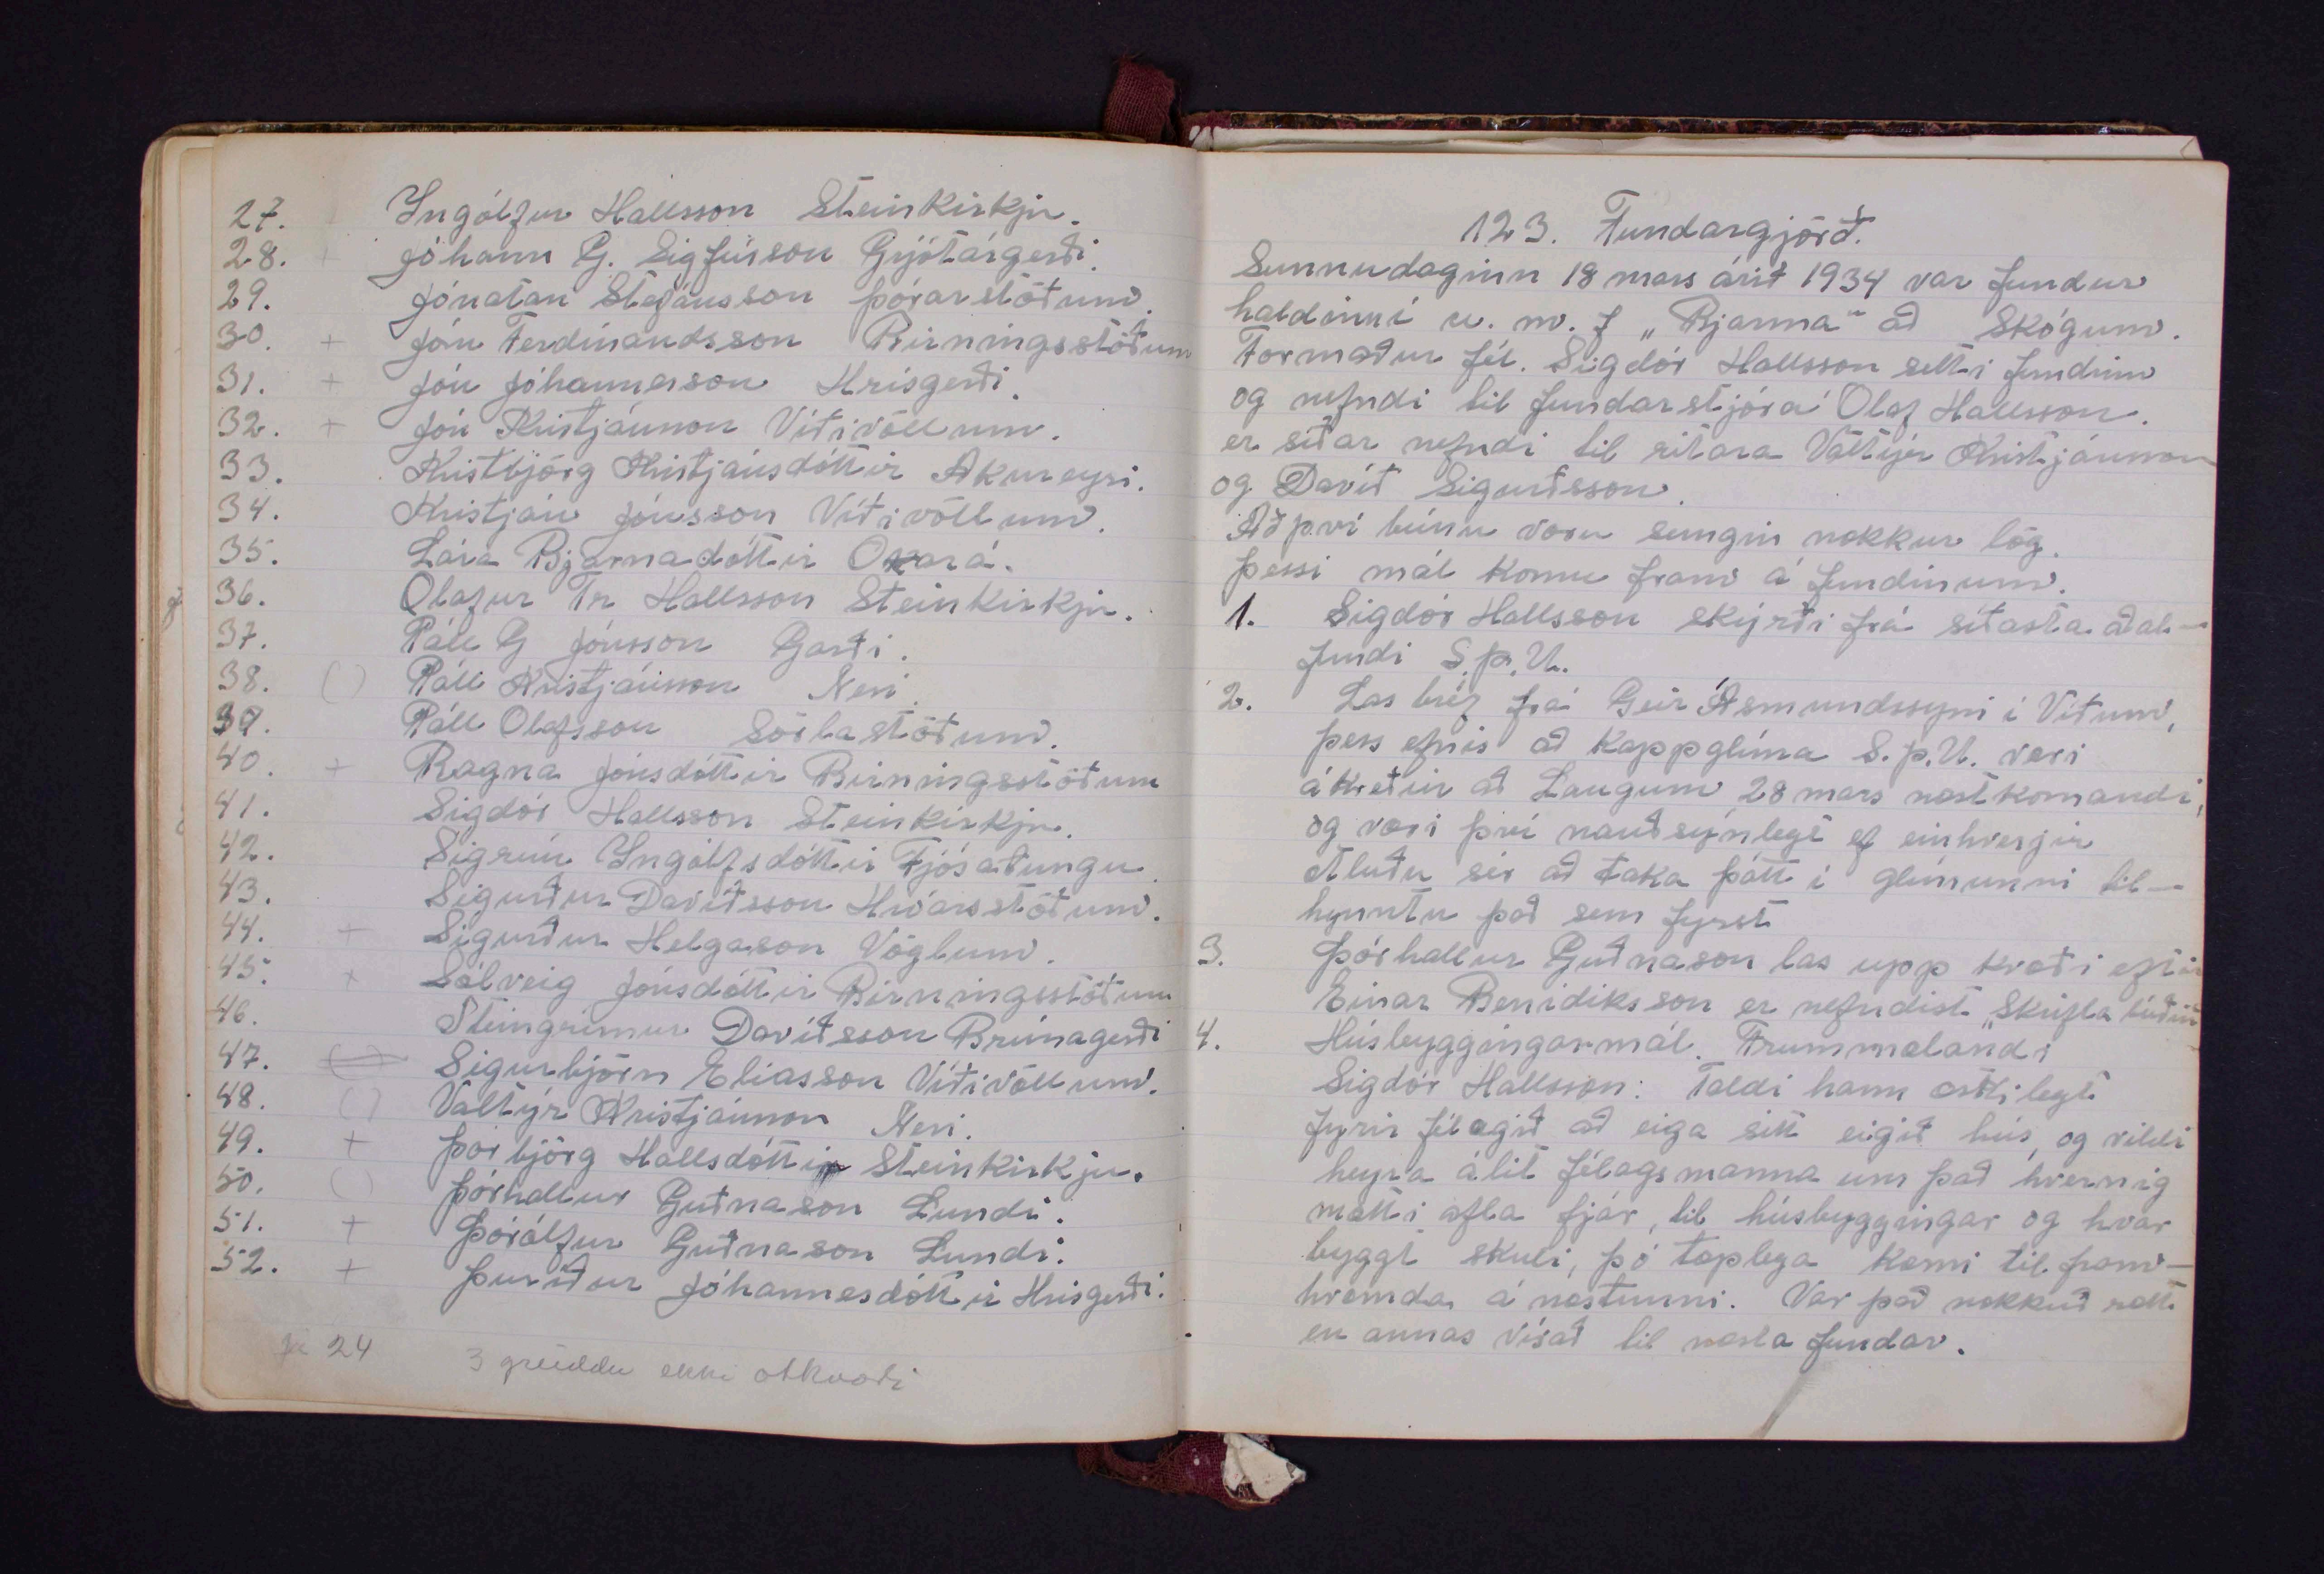 27. Ingólfur Hallsson Steinkirkju.
28. + Jóhann G. Sigfússon Grjótárgerði.
29. Jónatan Stefánsson Þórarstöðum.
30. + Jón Ferdínandsson Birningsstöðum
31. + Jón Jóhannesson Hrísgerði.
32. + Jón Kristjánsson Víðivöllum.
33. Kristbjörg Kristjánsdóttir Akureyri.
34. Kristján Jónsson Víðivöllum.
35. Lára Bjarnadóttir Oxará.
36. Olafur Tr Hallsson Steinkirkju.
37. Páll G Jónsson Garði.
38. ( ) Páll Kristjánsson Nesi.
39. Páll Olafsson Sörlastöðum.
40. + Ragna Jónsdóttir Birningsstöðum
41. Sigdór Hallsson Steinkirkju.
42. Sigrún Ingólfsdóttir Fjósatungu.
43. Sigurður Davíðsson Hróarsstöðum.
44. + Sigurður Helgason Vöglum.
45. + Sólveig Jónsdóttir Birningsstöðum
46. Steingrímur Davíðsson Brúnagerði
47. ( ) Sigurbjörn Elíasson Víðivöllum.
48. ( ) Valtýr Kristjánsson Nesi.
49. + Þorbjörg Hallsdóttir Steinkirkju.
50. ( ) Þórhallur Guðnason Lundi.
51. + Þórólfur Guðnason Lundi.
52. + Þuríður Jóhannesdóttir Hrisgerði.
Já 24 3 greiddu ekki atkvæði
123. Fundargjörð.
Sunnudaginn 18 mars árið 1934 var fundur
haldinn í u. m. f „Bjarma" að Skógum.
Formaður fél. Sigdór Hallsson setti fundinn
og nefndi til fundarstjóra Ólaf Hallsson.
er síðar nefndi til ritara Valtýr Kristjánsson
og Davíð Sigurðsson.
Að því búnu voru sungin nokkur lög.
Þessi mál komu fram á fundinum.
1. Sigdór Hallsson skýrði frá síðasta aðal-
fundi S.Þ.U.
2. Las bréf frá Geir Ásmundssyni í Víðum,
þess efnis að kappglíma S.Þ.U. væri
ákveðin að Laugum 28 mars næstkomandi,
og væri því nauðsýnlegt ef einhverjir
ætluðu sér að taka þátt í glímunni til-
kynntu það sem fyrst
3. Þórhallur Guðnason las upp kvæði eftir
Einar Benidiksson er nefndist „Skúflabúðin
4. Húsbyggingarmál. Frummælandi
Sigdór Hallsson: Taldi hann æskilegt
fyrir félagið að eiga sitt eigið hús, og vildi
heyra álit félagsmanna um það hvernig
mætti afla fjár, til húsbyggingar og hvar
byggt skuli, þó tæplega kæmi til fram-
kvæmda á næstunni. Var það nokkuð rætt
en annas vísað til næsta fundar.